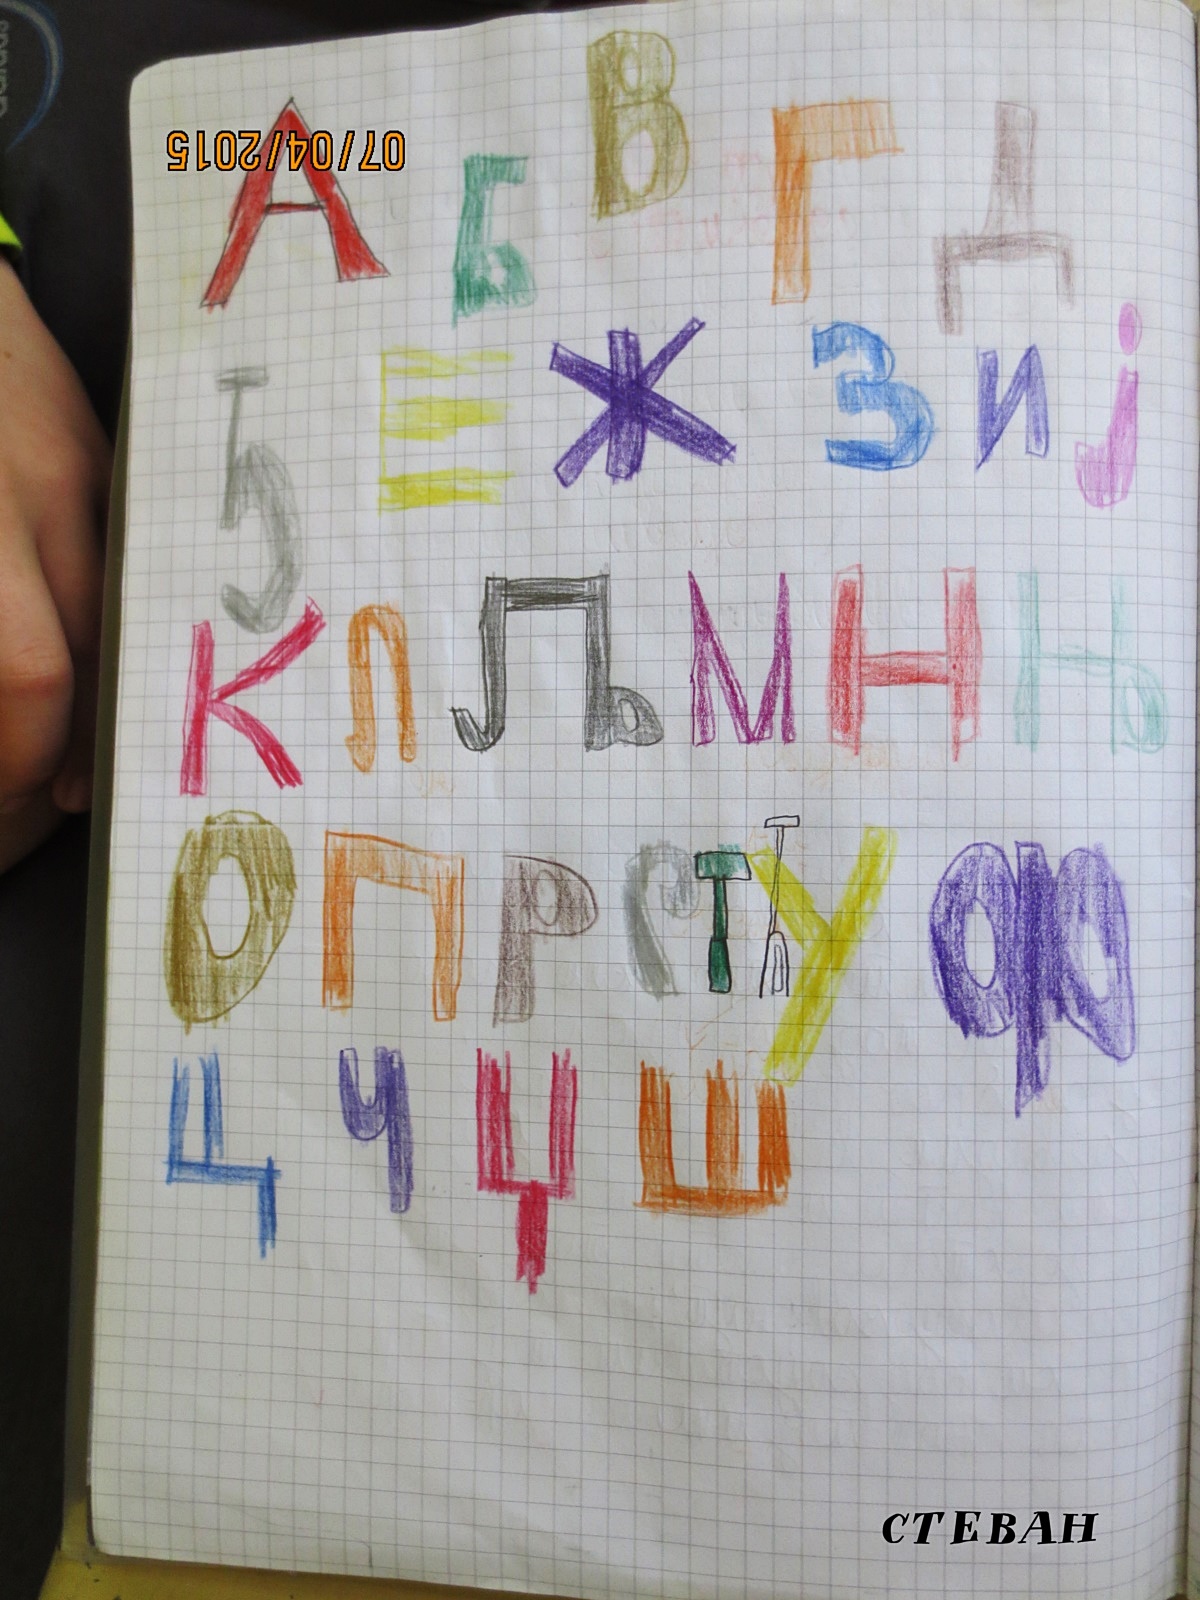 07/04/2015
А Б В Г Д
Ђ Е Ж З И Ј
К Л Љ М Н Њ
О П Р С Т Ћ У Ф
Ц Ч Џ Ш
СТЕВАН